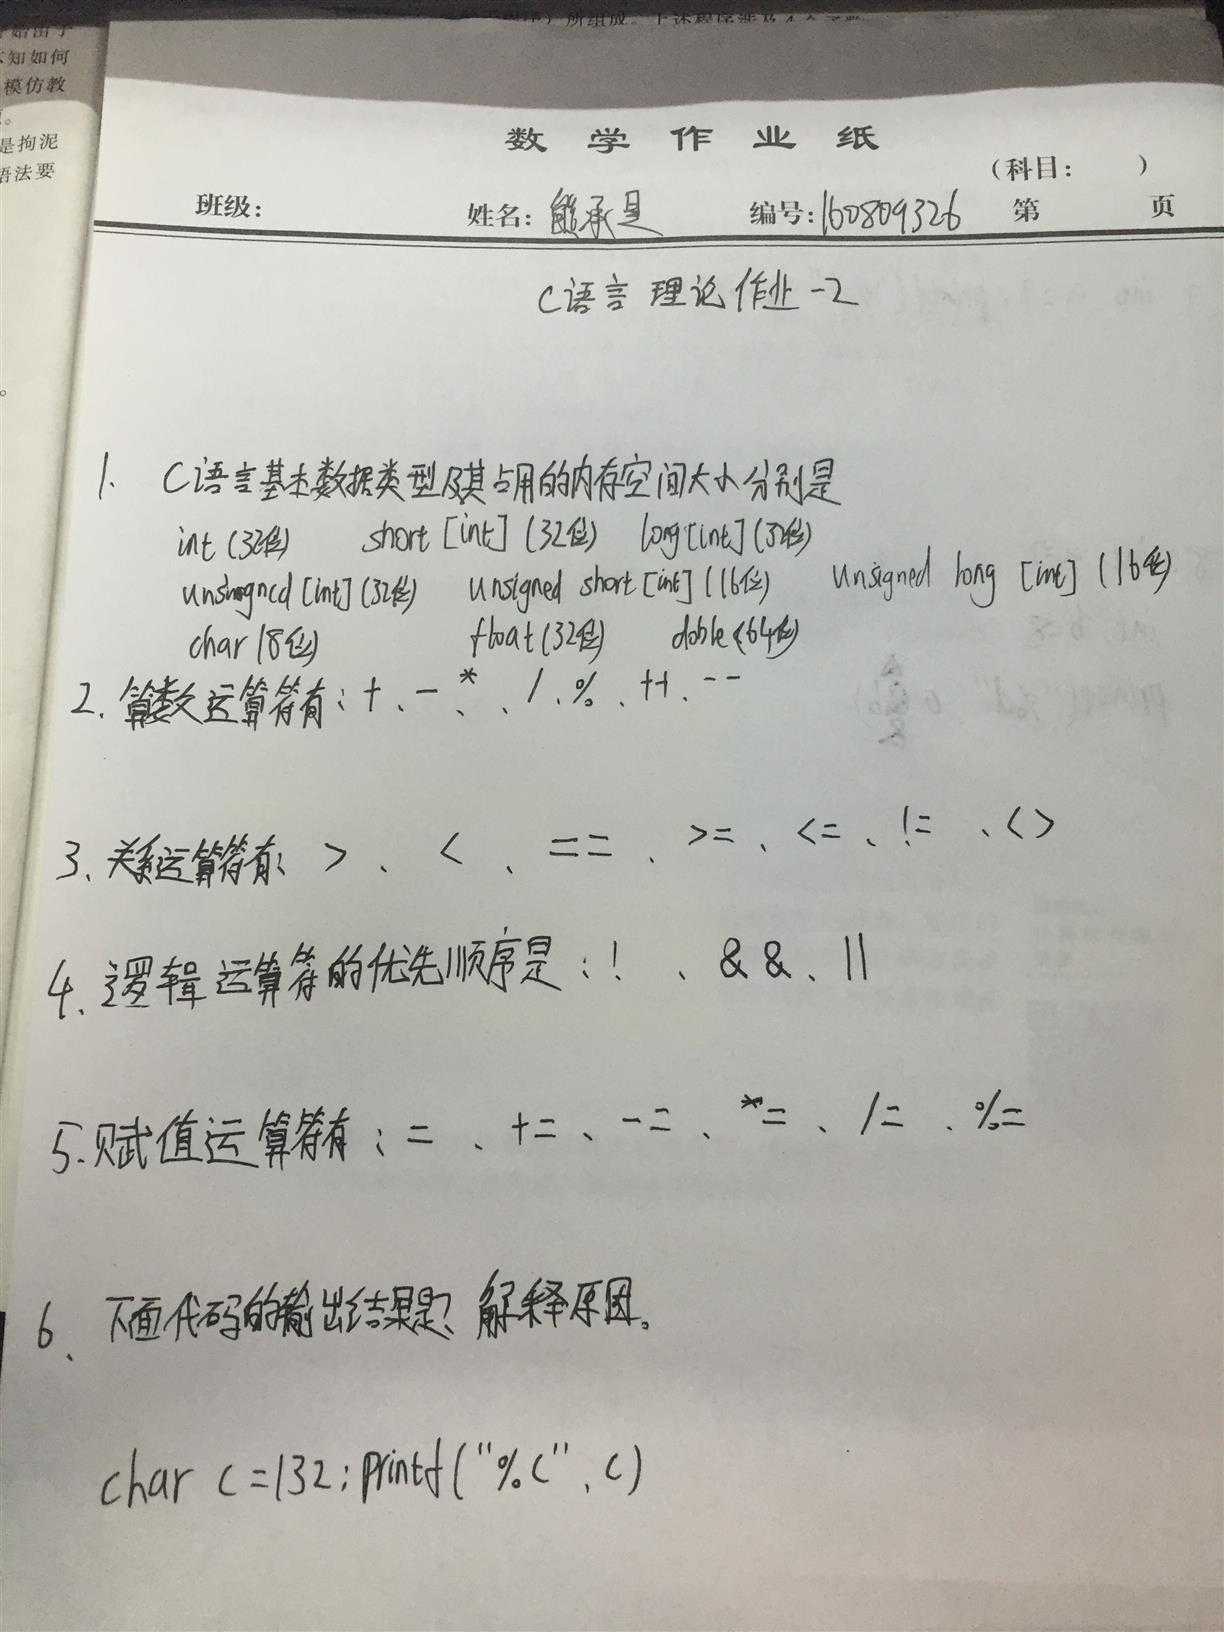 开始出于
不知如何
模仿教
是拘泥
语法要
数学作业纸
(科目: )
班级: 姓名: 熊承是 编号: 160809326 第 页
C语言 理论作业-2
1. C语言基本数据类型及其占用的内存空间大小分别是
int (32位) short [int] (32位) long [int] (32位)
unsigned [int] (32位) unsigned short [int] (16位) unsigned long [int] (16位)
char (8位) float (32位) doble (64位)
2、算数运算符有: +、-、*、/、%、++、--
3、关系运算符有: >、<、==、>=、<=、!=、<>
4、逻辑运算符的优先顺序是: !、&&、||
5.赋值运算符有: =、+=、-=、*=、/=、%=
6、下面代码的输出结果是? 解释原因。
char c=132; printf("%c", c)